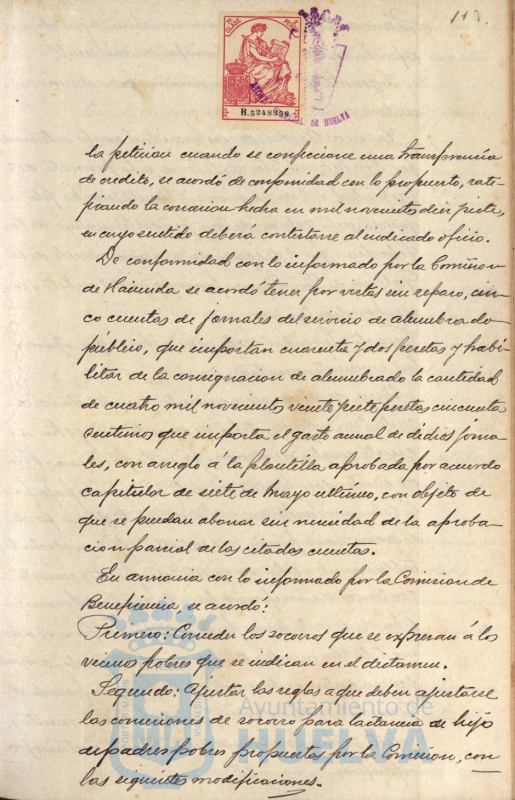 113.
CLASE
PESETAS
B.5248959
DE HUELVA
la peticion cuando se confeccione una transferencia
de credito, se acordó de conformidad con lo propuesto, rati-
ficando la concesion hecha en mil novecientos diez y siete,
en cuyo sentido deberá contestarse al indicado oficio.
De conformidad con lo informado por la Comision
de Hacienda se acordó tener por vistas sin reparo, cin-
co cuentas de jornales del servicio de alumbrado
público, que importan cuarenta y dos pesetas y habi-
litar de la consignacion de alumbrado la cantidad
de cuatro mil novecientos veinte y siete pesetas cincuenta
centimos que importa el gasto anual de dichos jorna-
les, con arreglo á la plantilla aprobada por acuerdo
capitular de siete de Mayo ultimo, con objeto de
que se puedan abonar sin necesidad de la aproba-
cion parcial de las citadas cuentas.
En armonia con lo informado por la Comision de
Beneficencia, se acordó:
Primero: Conceder los socorros que se expresan á los
vecinos pobres que se indican en el dictamen.
Segundo: Ajustar las reglas a que deben ajustarse
las concesiones de socorro para lactancia de hijo
de padres pobres propuestas por la Comision, con
las siguientes modificaciones.
Ayuntamiento de
HUELVA